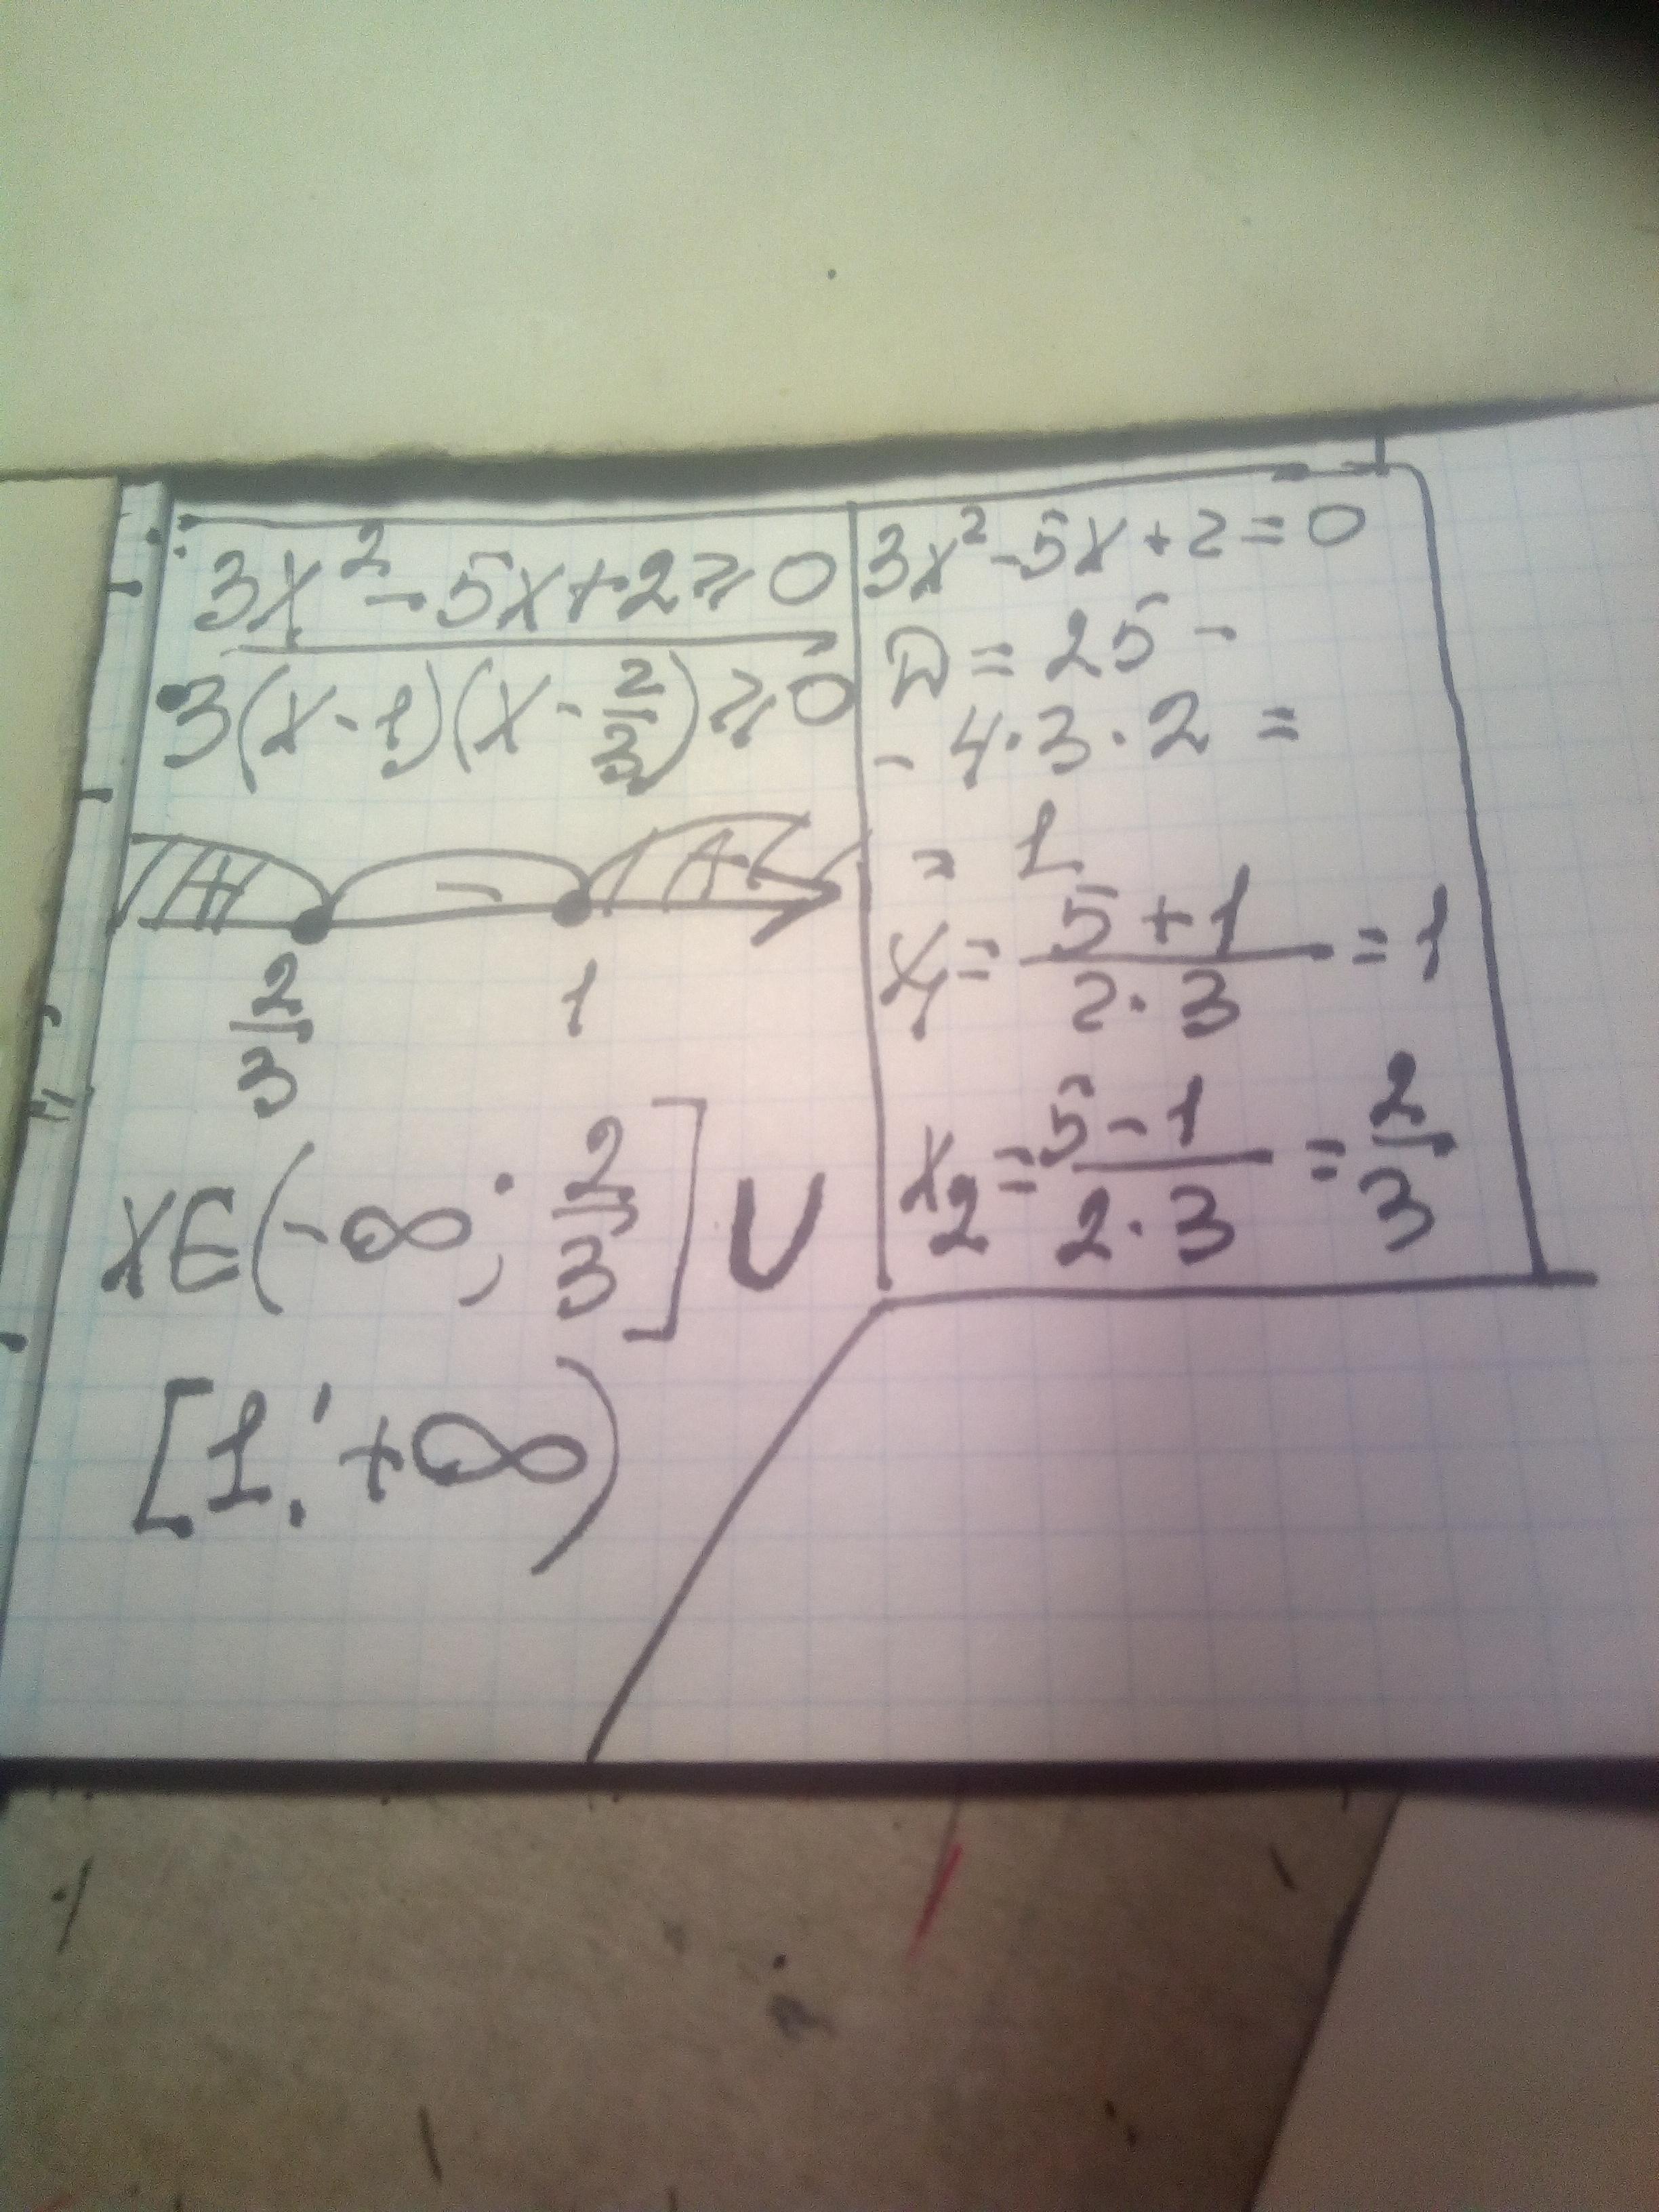 3x² - 5x + 2 ⩾ 0
3(x - 1)(x - 2/3) ⩾ 0
+ - +
2/3 1
x ∈ (-∞; 2/3] ∪
[1; +∞)
3x² - 5x + 2 = 0
D = 25 -
- 4·3·2 =
= 1
x₁ = (5 + 1)/(2·3) = 1
x₂ = (5 - 1)/(2·3) = 2/3